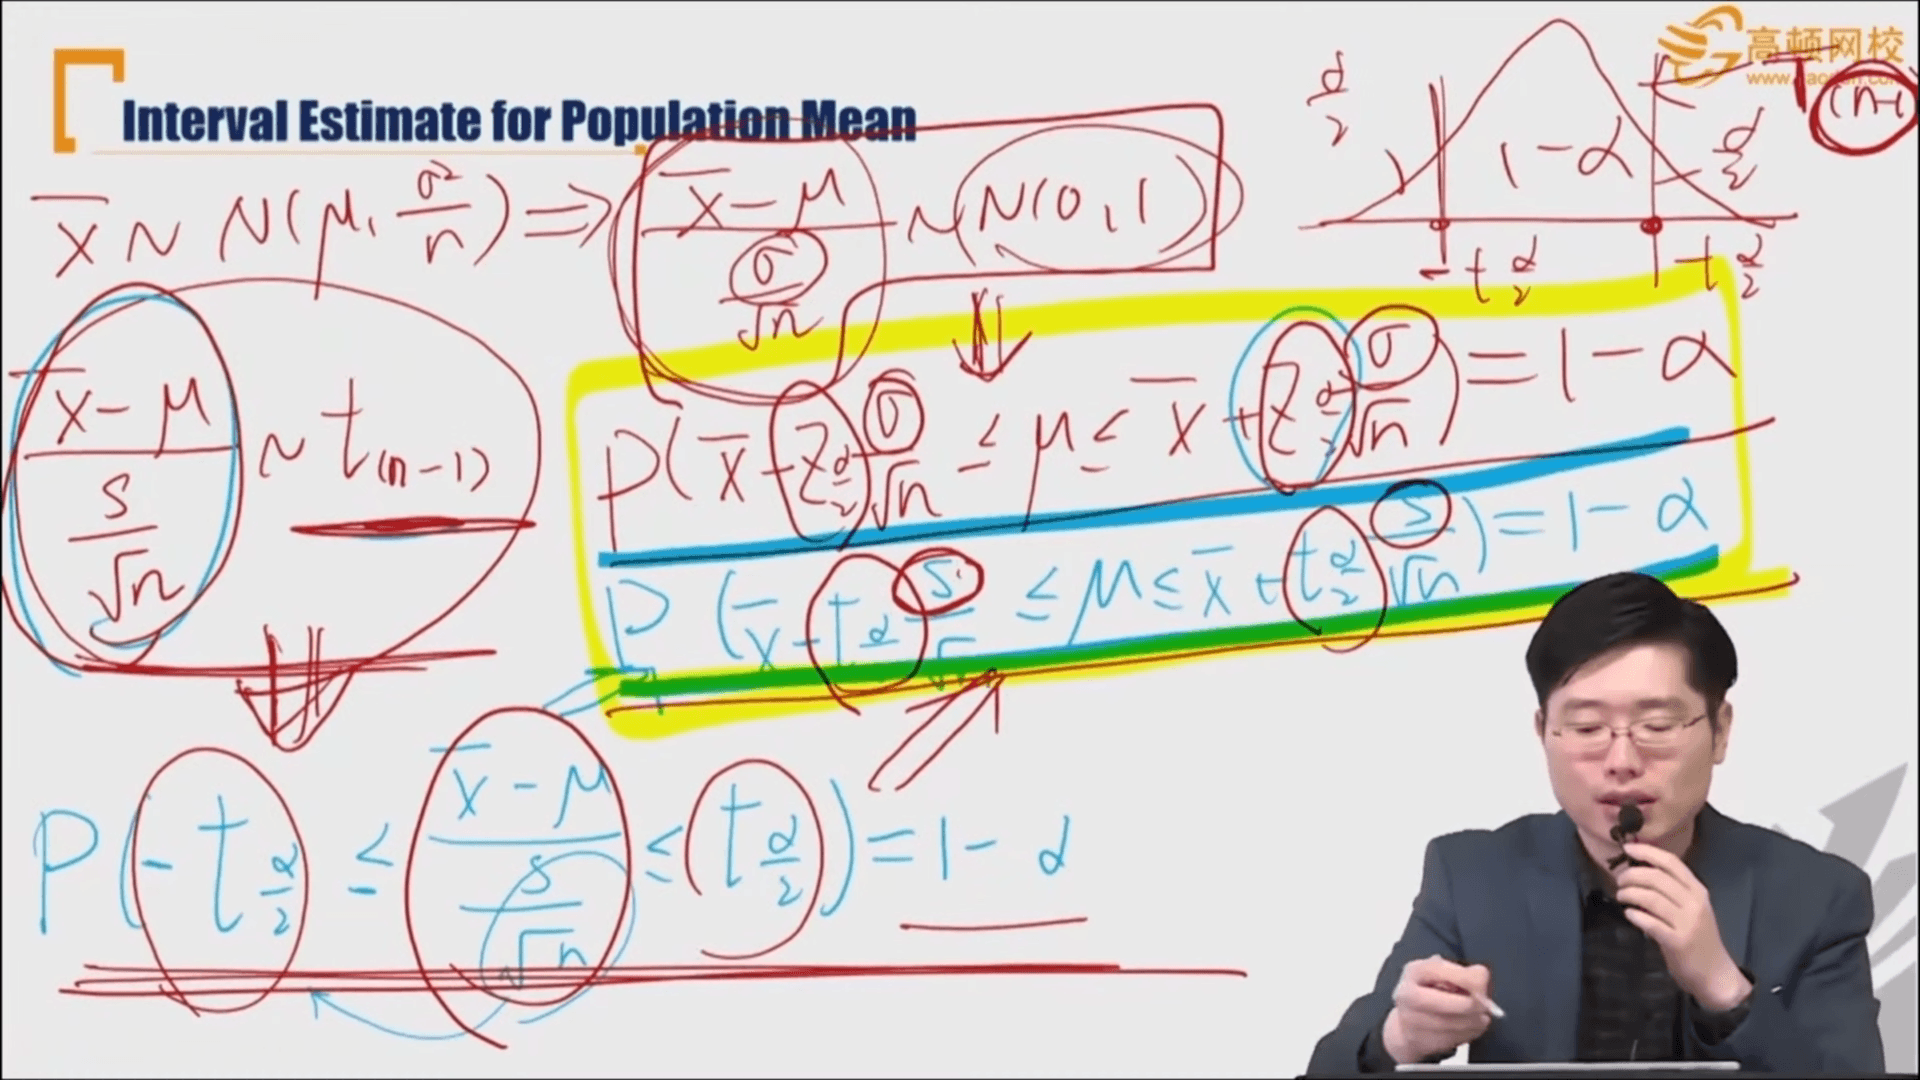 高顿网校
Interval Estimate for Population Mean
x̄ ~ N(μ, σ²/n) ⇒ (x̄ - μ)/(σ/√n) ~ N(0, 1)
α/2 1-α α/2 T(n-1)
-t α/2 t α/2
(x̄ - μ)/(s/√n) ~ t(n-1)
P(x̄ - Z α/2 σ/√n ≤ μ ≤ x̄ + Z α/2 σ/√n) = 1-α
P(x̄ - t α/2 s/√n ≤ μ ≤ x̄ + t α/2 s/√n) = 1-α
P(-t α/2 ≤ (x̄ - μ)/(s/√n) ≤ t α/2) = 1-α